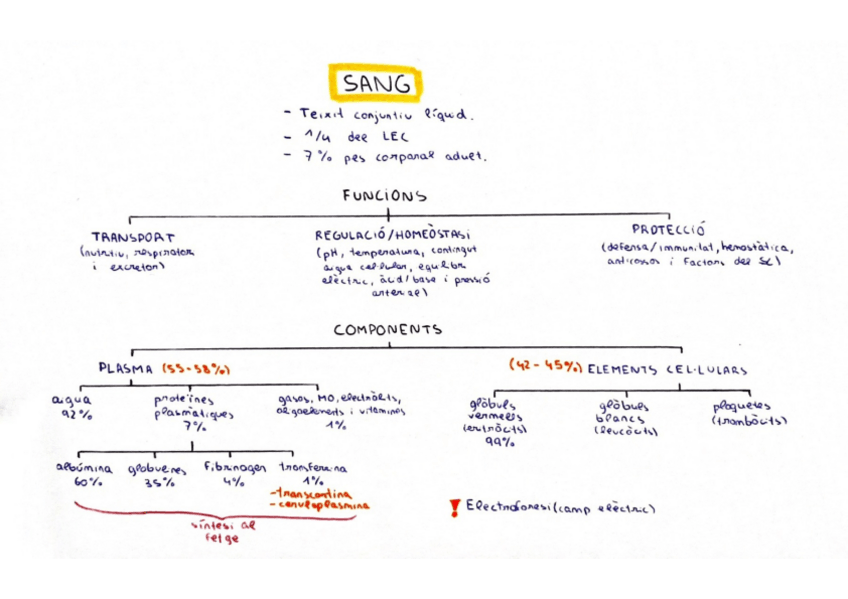 SANG
- Teixit conjuntiu líquid.
- 1/4 del LEC
- 7% pes corporal adult.
FUNCIONS
TRANSPORT
(nutritiu, respirator
i excretor)
REGULACIÓ/HOMEÒSTASI
(pH, temperatura, contingut
aigua cel·lular, equilibri
elèctric, àcid/base i pressió
arterial)
PROTECCIÓ
(defensa/immunitat, hemostàtica,
anticossos i factors del SC)
COMPONENTS
PLASMA (55-58%)
(42-45%) ELEMENTS CEL·LULARS
aigua
92%
proteïnes
plasmàtiques
7%
gasos, MO, electròlits,
oligoelements i vitamines
1%
glòbuls
vermells
(eritròcits)
99%
glòbuls
blancs
(leucòcits)
plaquetes
(trombòcits)
albúmina
60%
globulines
35%
fibrinogen
4%
transferrina
1%
- transcortina
- ceruloplasmina
síntesi al
fetge
! Electroforesi (camp elèctric)